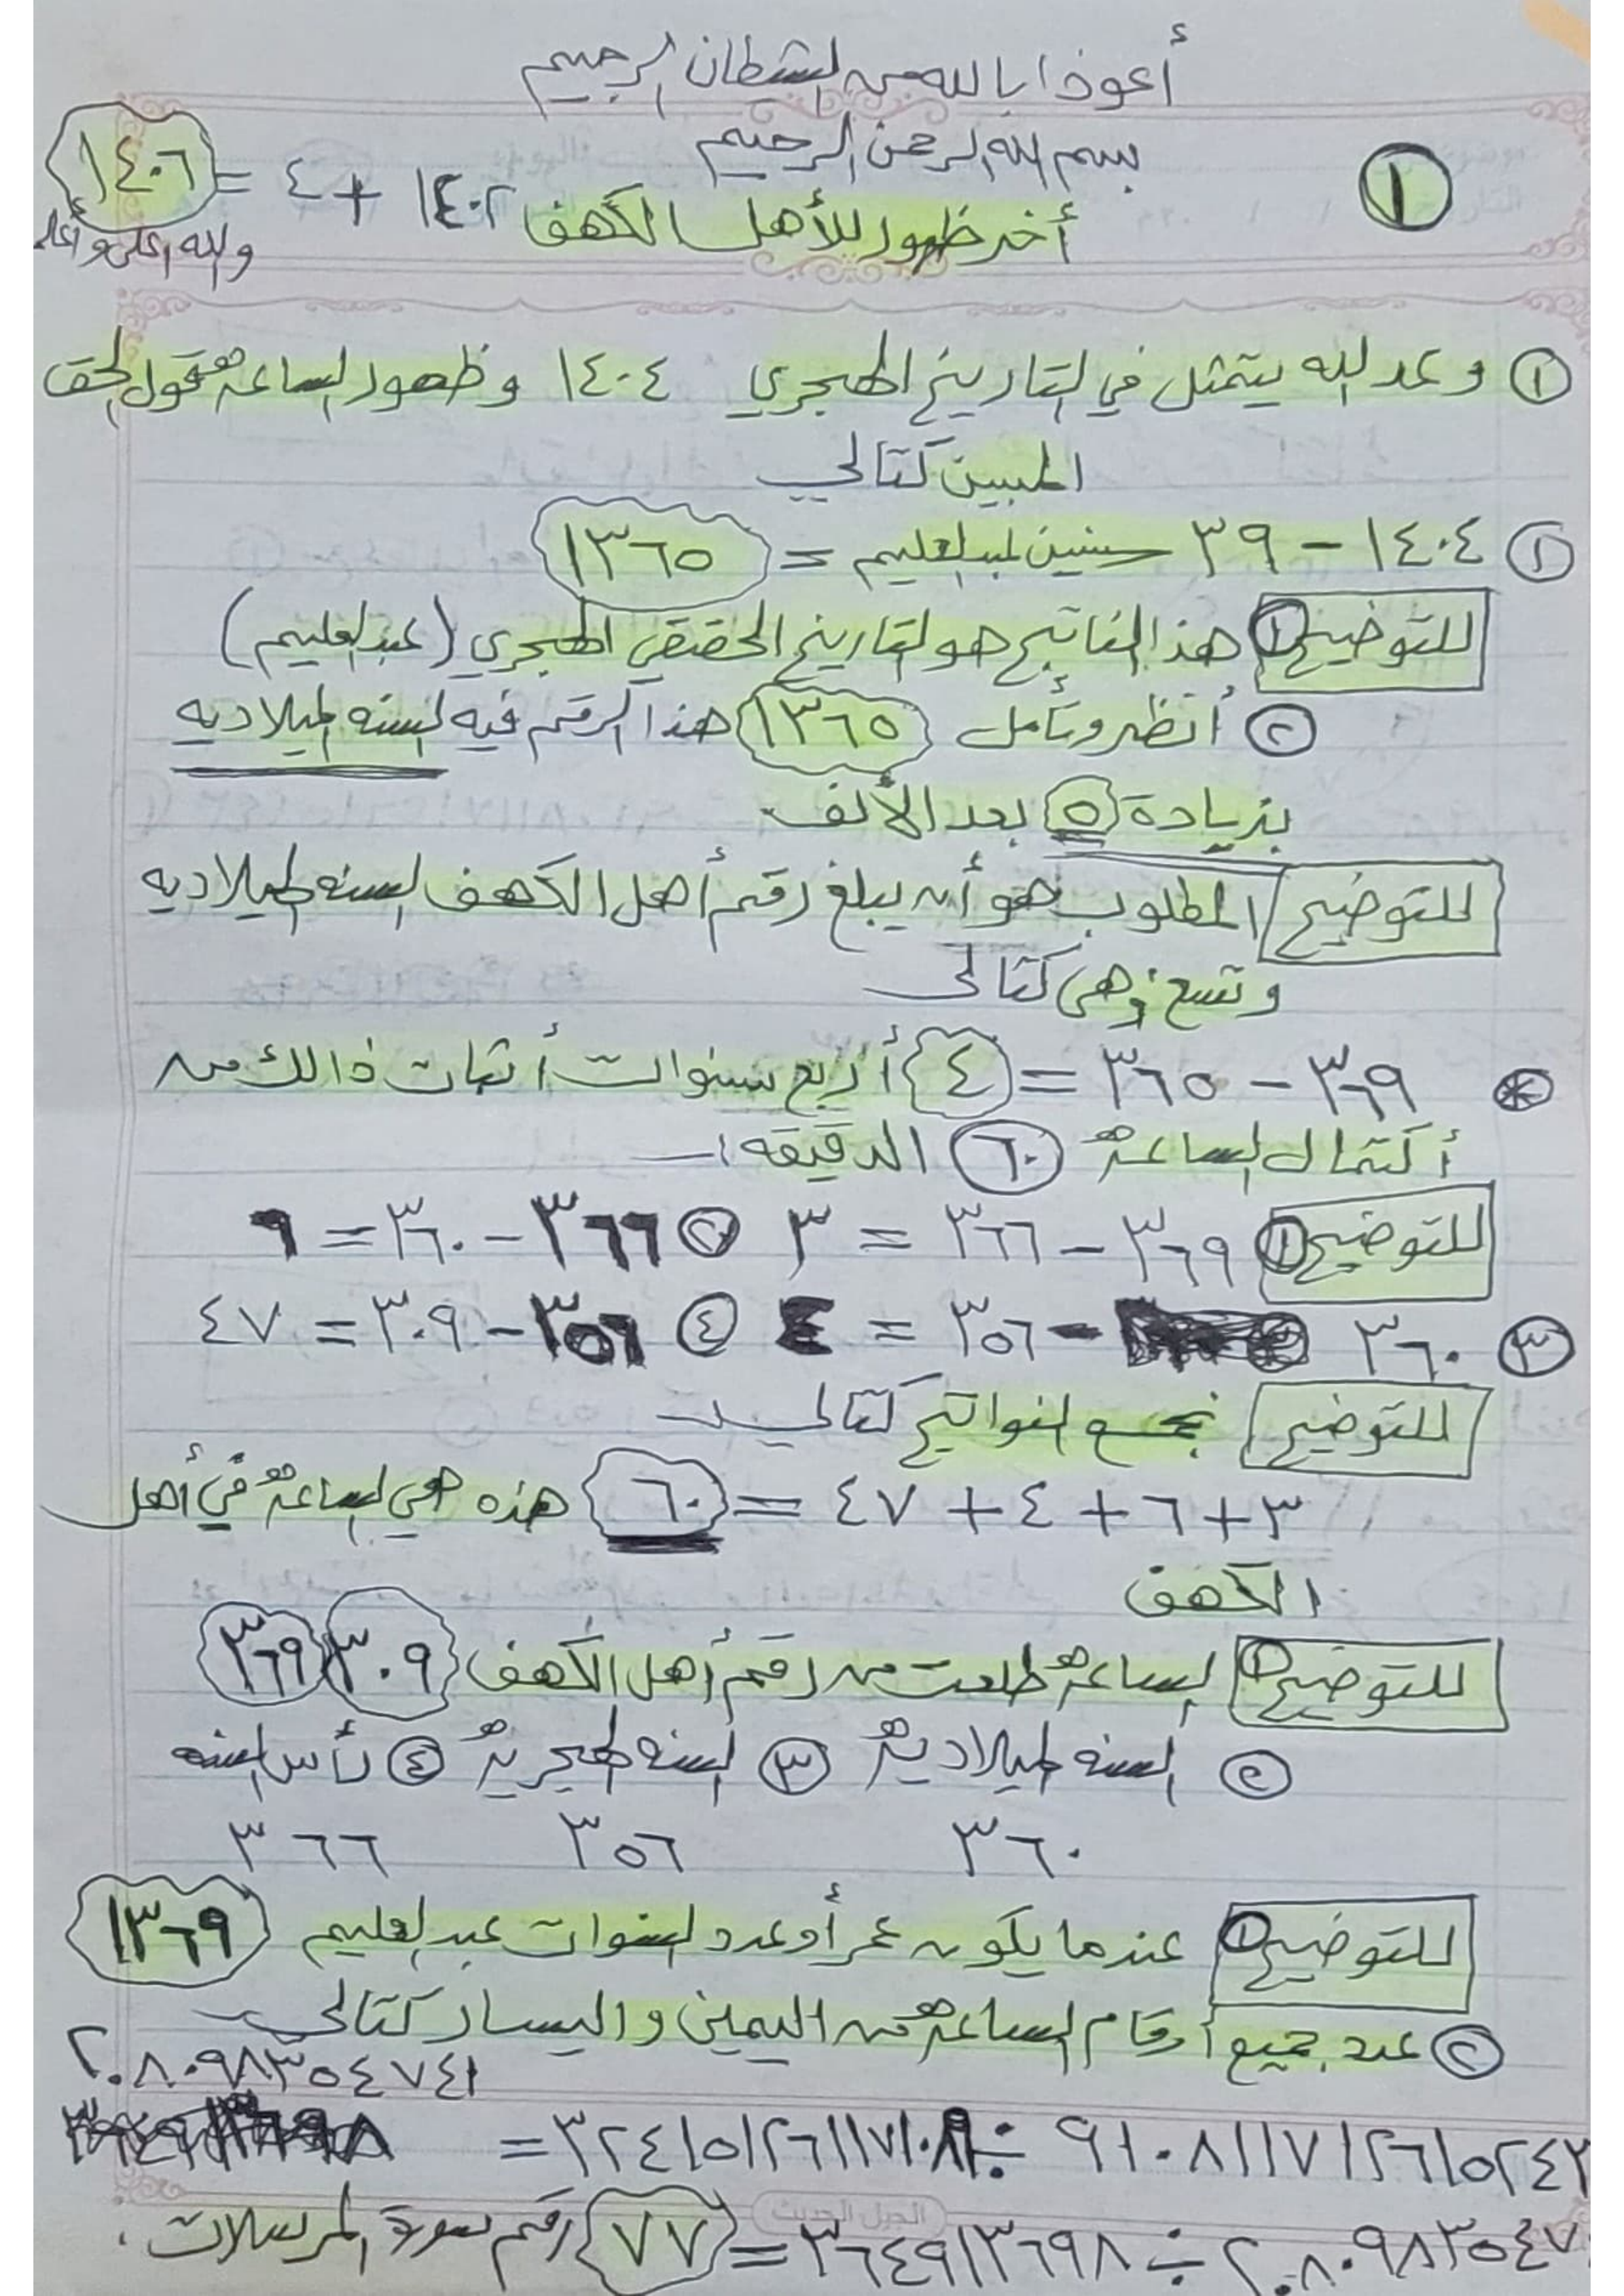 أعوذ ا بالله من الشطان الرجيم
بسم الله الرحمن الرحيم
١
أخر ظهور للأهل الكهف ١٤٠٢ + ٤ = ١٤٠٦
والله اعلى وأعلم
١ وعد الله يتمثل في التاريخ الهجري ١٤٠٤ وظهور الساعة هو قول الحق
المبين كتالي
١ ١٤٠٤ - ٣٩ سنين عبد العليم = ١٣٦٥
للتوضيح ١ هذا الناتج هو التاريخ الحقيقي الهجري (عبد العليم)
٢ أنظر وتأمل ١٣٦٥ هذا الرقم فيه السنه الميلاديه
بزيادة ٥ بعد الألف
للتوضيح المطلوب هو أن يبلغ رقم أهل الكهف السنه الميلاديه
وتسع وهي كتالي
* ٣٦٩ - ٣٦٥ = ٤ أربع سنوات أثبات ذالك من
أكتمال الساعة ٦٠ الدقيقه :ـ
للتوضيح ١ ٣٦٩ - ٣٦٦ = ٣ ٢ ٣٦٦ - ٣٦٠ = ٦
٣ ٣٦٠ - ٣٥٦ = ٤ ٤ ٣٥٦ - ٣٠٩ = ٤٧
للتوضيح نجمع النواتج كتالي :ـ
٣ + ٦ + ٤ + ٤٧ = ٦٠ هذه هي الساعة في أهل
الكهف
للتوضيح ١ الساعة طلعت من رقم أهل الكهف ٣٠٩ ٣٦٩
٢ السنه الميلادية ٣ السنه الهجرية ٤ رأس السنه
٣٦٠ ٣٥٦ ٣٦٦
للتوضيح ١ عندما يكون عمر أو عدد السنوات عبد العليم ١٣٦٩
٢ عدد جميع أرقام الساعة من اليمين واليسار كتالي
٢٠٨٠٩٨٣٥٤٧٤١
٩١٠٨١١٧١٢٦١٥٢٤٣ ÷ ٣٢٤١٥١٢٦١١٧١٠٨٩ =
٢٠٨٠٩٨٣٥٤٧ ÷ ٣٦٤٩١٣٦٩٨ = ٧٧ رقم سورة المرسلات .
الجيل الحديث